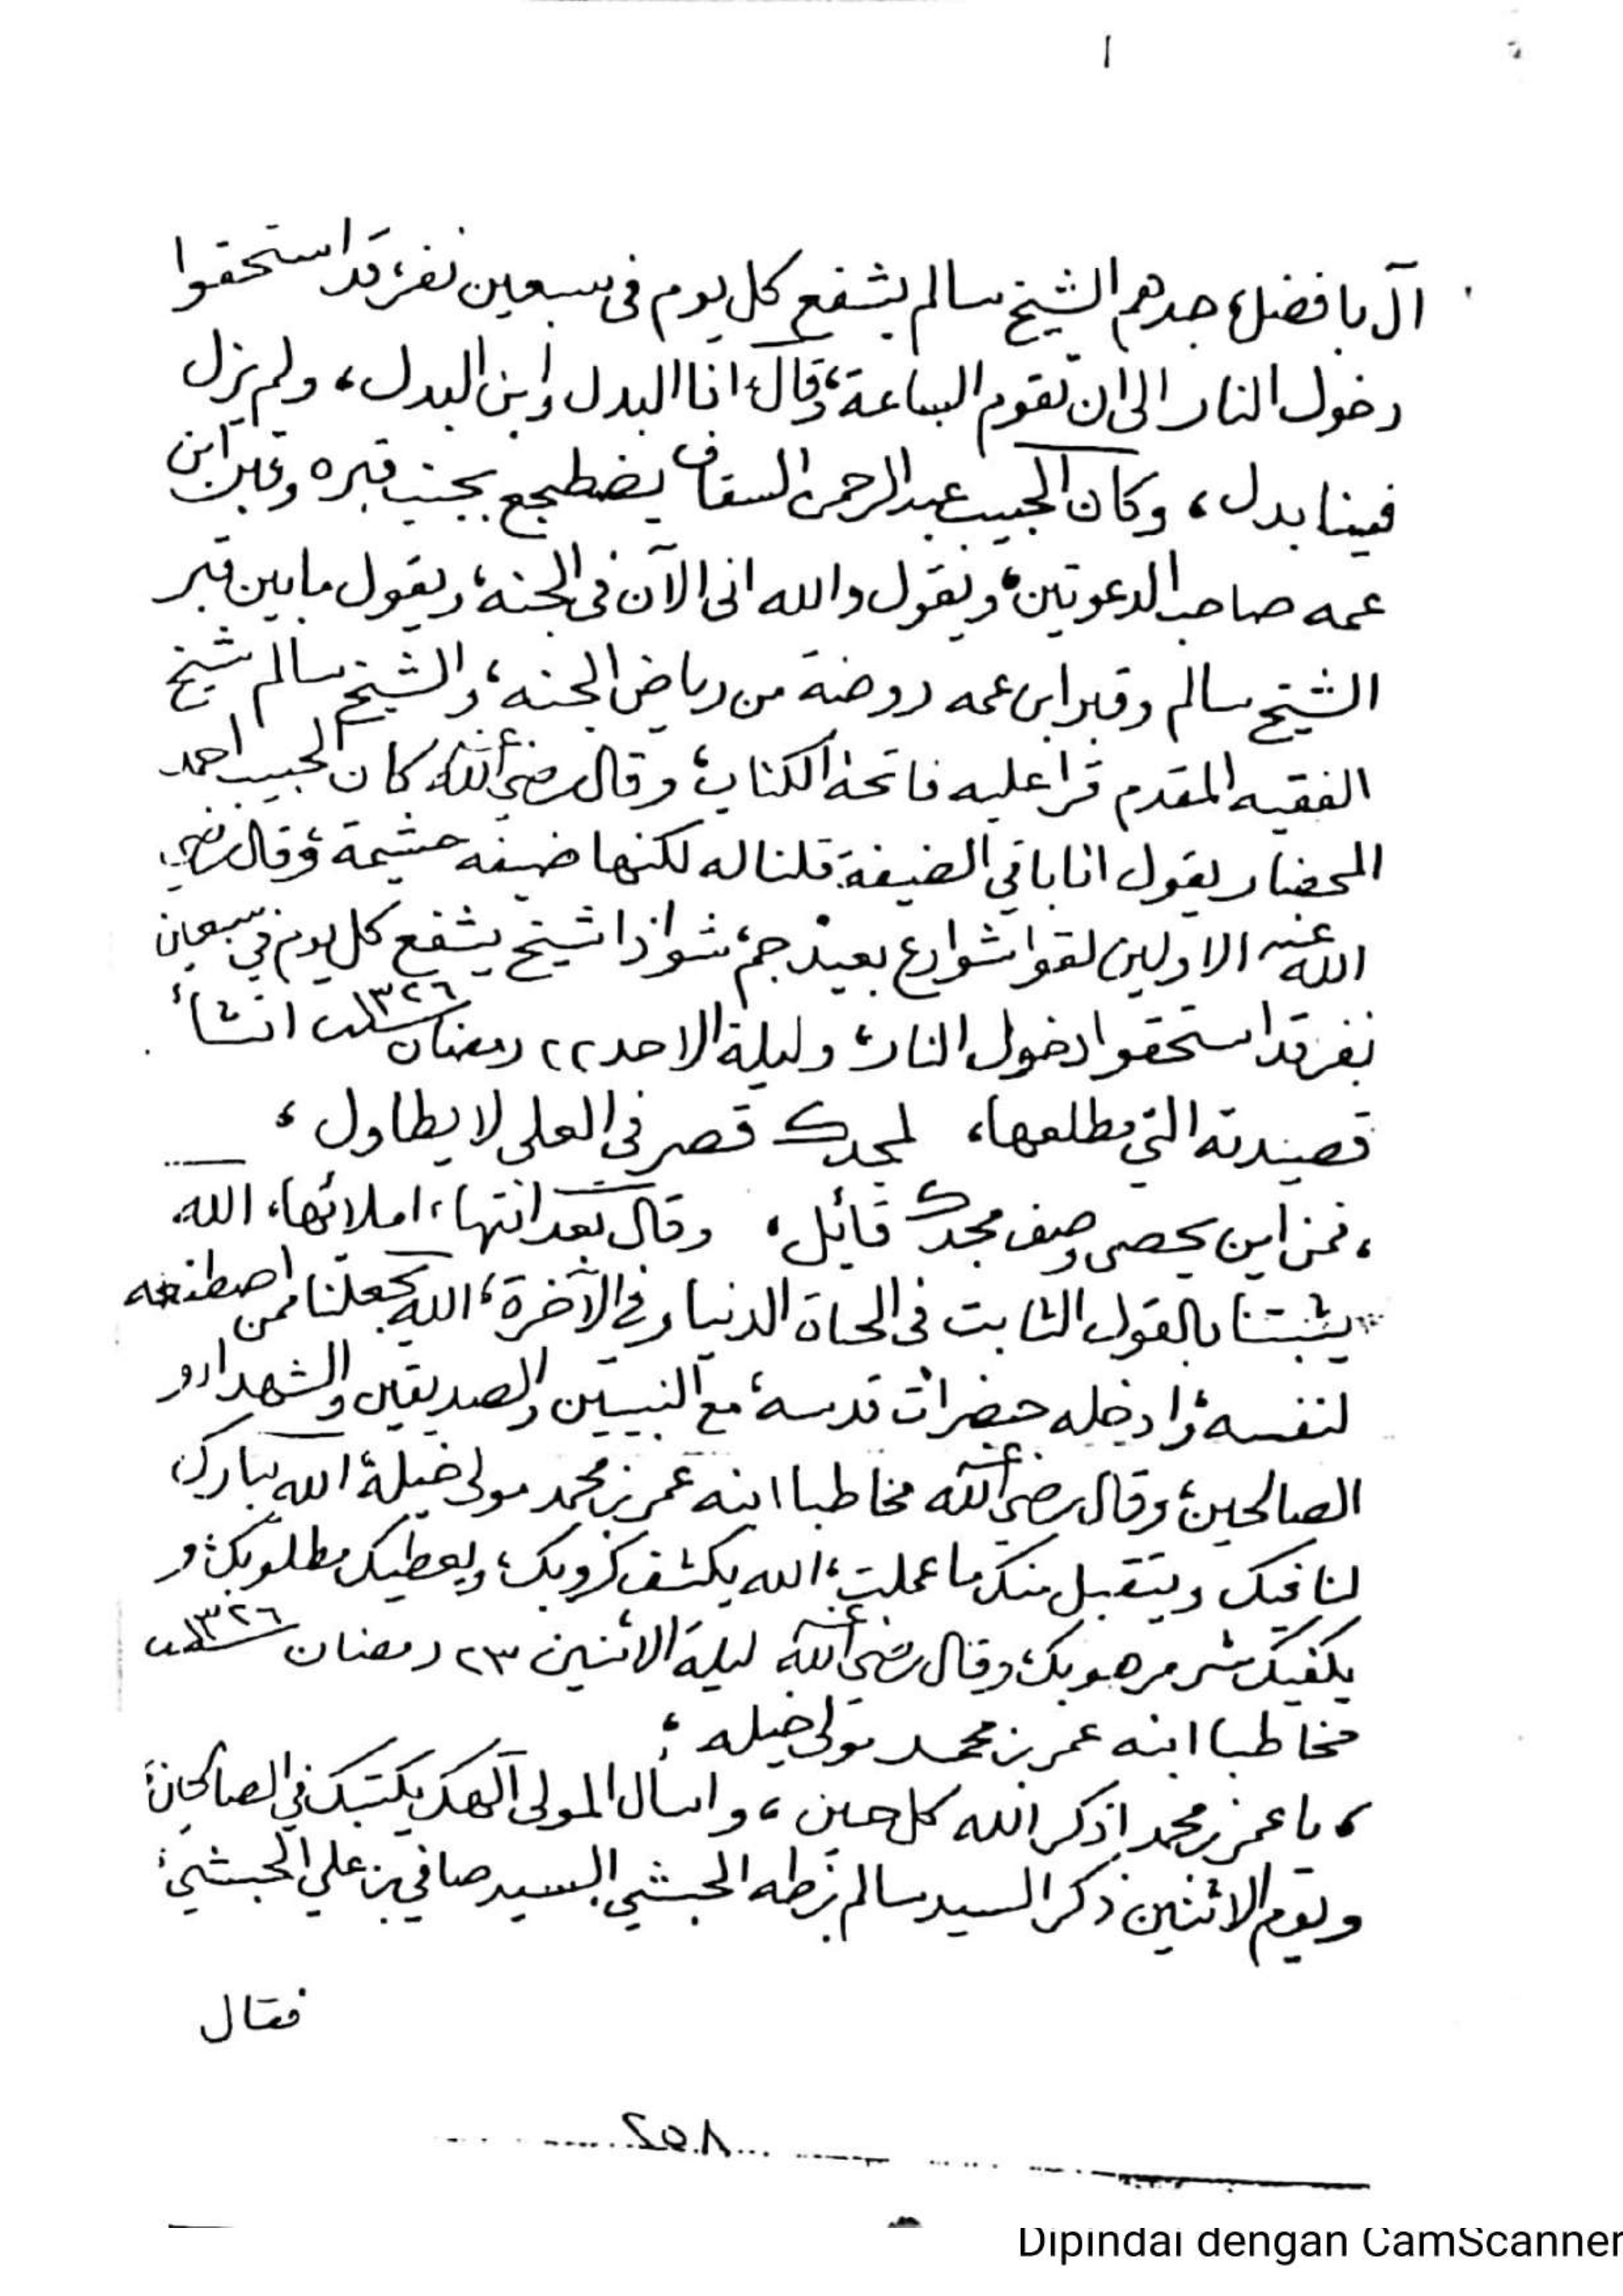 ١
آل بافضل، جدهم الشيخ سالم يشفع كل يوم فى سبعين نفر، قد استحقوا
دخول النار الى ان تقوم الساعة، وقال، انا البدل وابن البدل، ولم يزل
فينا بدل، وكان الحبيب عبد الرحمن السقاف يضطجع بجنب قبره وقبر ابن
عمه صاحب الدعوتين، ويقول والله انى الآن فى الجنه، ويقول ما بين قبر
الشيخ سالم وقبر ابن عمه روضة من رياض الجنه، والشيخ سالم شيخ
الفقيه المقدم قرا عليه فاتحة الكتاب، وقال رضي الله عنه كان الحبيب احمد
المحضار يقول انا باقي الضيفة قلنا له لكنها ضيفه حشيمة، وقال رضي
الله عنه الاولين لقوا شوارع بعيد جم، شوا ذا شيخ يشفع كل يوم في سبعين
نفر قد استحقوا دخول النار، وليلة الاحد ٢٢ رمضان سنة ١٣٢٦ انشأ
قصيدته التي مطلعها، لمجدك قصر فى العلى لا يطاول،
، فمن اين يحصى وصف مجدك قائل، وقال بعد انتهاء املائها، الله
يثبتنا بالقول الثابت فى الحياة الدنيا وفي الآخرة، الله يجعلنا ممن اصطنعه
لنفسه، وادخله حضرات قدسه، مع النبيين والصديقين والشهداء و
الصالحين، وقال رضي الله عنه مخاطبا ابنه عمر بن محمد مولى خيلة، الله يبارك
لنا فيك ويتقبل منك ما عملت، الله يكشف كروبك، ويعطيك مطلوبك، و
يكفيك شر مرهوبك، وقال رضي الله عنه ليلة الاثنين ٢٣ رمضان سنة ١٣٢٦
مخاطبا ابنه عمر بن محمد مولى خيله،
، يا عمر بن محمد اذكر الله كل حين، واسأل المولى آلهك يكتبك في الصالحين،
ويوم الاثنين ذكر السيد سالم بن طه الحبشي السيد صافي بن علي الحبشي،
فقال
٢٥٨
Dipindai dengan CamScanner